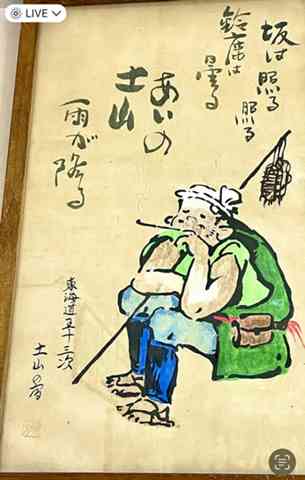 LIVE
坂は照る照る
鈴鹿は
曇る
あいの
土山
雨が降る
東海道五十三次
土山の宿